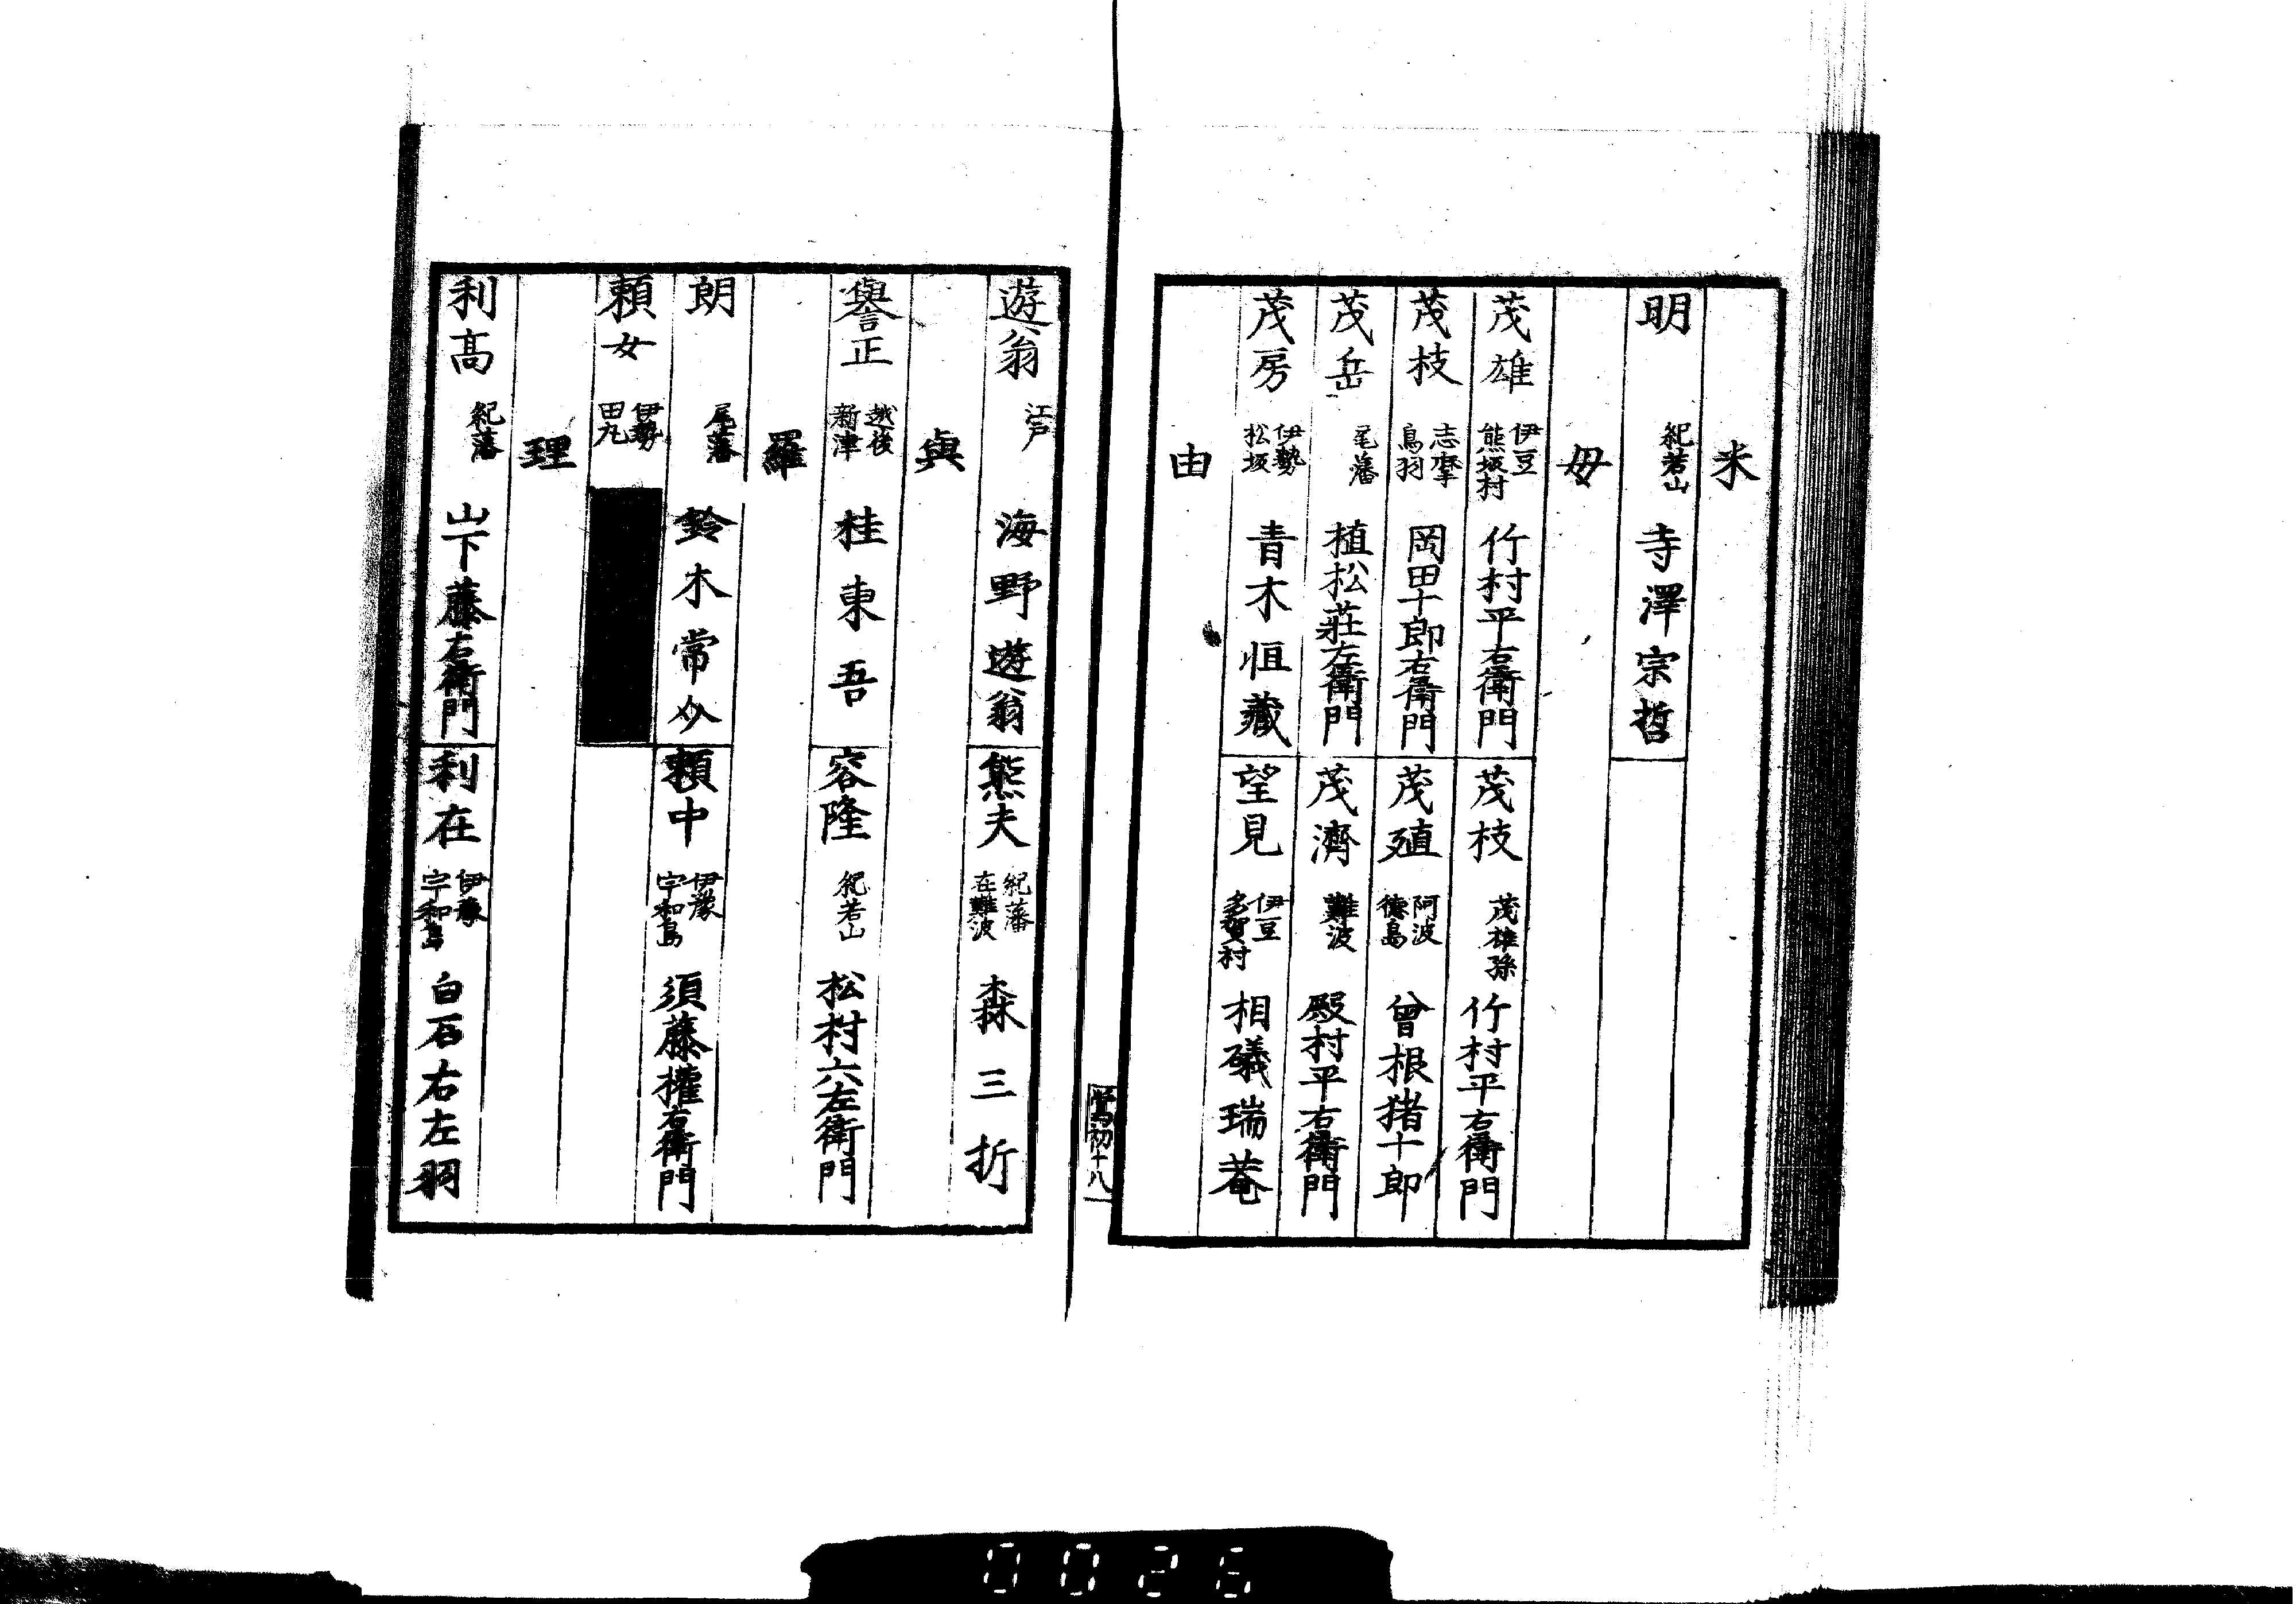 米
明 紀若山 寺澤宗哲
毋
茂雄 伊豆熊坂村 竹村平右衛門
茂枝 茂雄孫 竹村平右衛門
茂枝 志摩鳥羽 岡田十郎右衛門
茂殖 阿波徳島 曾根猪十郎
茂岳 尾藩 植松莊左衛門
茂濟 難波 殿村平右衛門
茂房 伊勢松坂 青木恒藏
望見 伊豆多賀村 相礒瑞菴
由
鴬初十八
遊翁 江戸 海野遊翁
熊夫 紀藩在難波 森三折
與
譽正 越後新津 桂東吾
容隆 紀若山 松村六左衛門
羅
朗 尾藩 鈴木常介
頼中 伊豫宇和島 須藤權右衛門
頼女 伊勢田丸
理
利髙 紀藩 山下藤右衛門
利在 伊豫宇和島 白石右左羽
0026